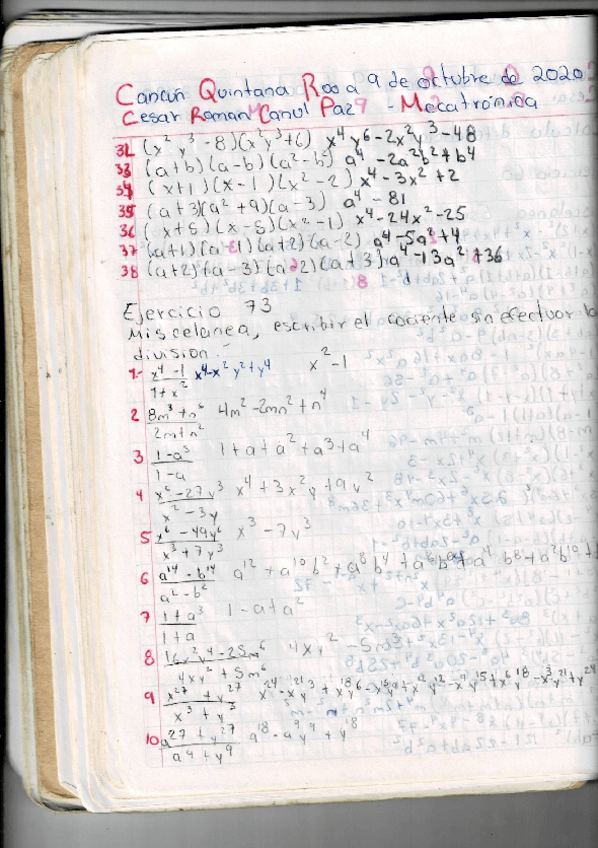 Cancún Quintana Roo a 9 de octubre de 2020
Cesar Roman Canul Paz - Mecatrónica
32 (x² y³ -8)(x² y³+6) x⁴ y⁶ -2x² y³ -48
33 (a+b)(a-b)(a²-b²) a⁴ -2a²b²+b⁴
34 (x+1)(x-1)(x²-2) x⁴-3x²+2
35 (a+3)(a²+9)(a-3) a⁴ - 81
36 (x+5)(x-5)(x²-1) x⁴-24x²-25
37 (a+1)(a-1)(a+2)(a-2) a⁴-5a²+4
38 (a+2)(a-3)(a-2)(a+3) a⁴-13a²+36
Ejercicio 73
Miscelanea, escribir el cociente sin efectuar la
division.-
1.- x⁴-1 x⁴-x² y²+y⁴ x²-1
1+x²
2 8m³+n⁶ 4m²-2mn²+n⁴
2m+n²
3 1-a⁵ 1+a+a²+a³+a⁴
1-a
4 x⁶-27y³ x⁴+3x²y+9y²
x²-3y
5 x⁶-49y⁶ x³-7y³
x³+7y³
6 a¹⁴-b¹⁴ a¹²+a¹⁰b²+a⁸b⁴+a⁶b⁶+a⁴ b⁸+a²b¹⁰+
a²-b²
7 1+a³ 1-a+a²
1+a
8 16x²y⁴-25m⁶ 4xy²-5m³
4xy²+5m³
9 x²⁷+y²⁷
x³+y³
10 a²⁷+y²⁷ a¹⁸-a⁹y⁹+y¹⁸
a⁹+y⁹